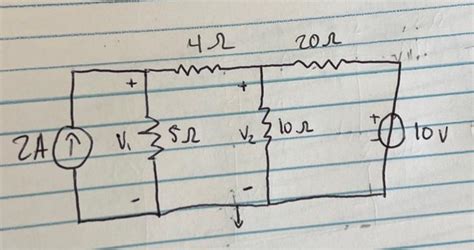 4Ω 20Ω
+ +
2A V₁ 5Ω V₂ 10Ω + - 10V
- -